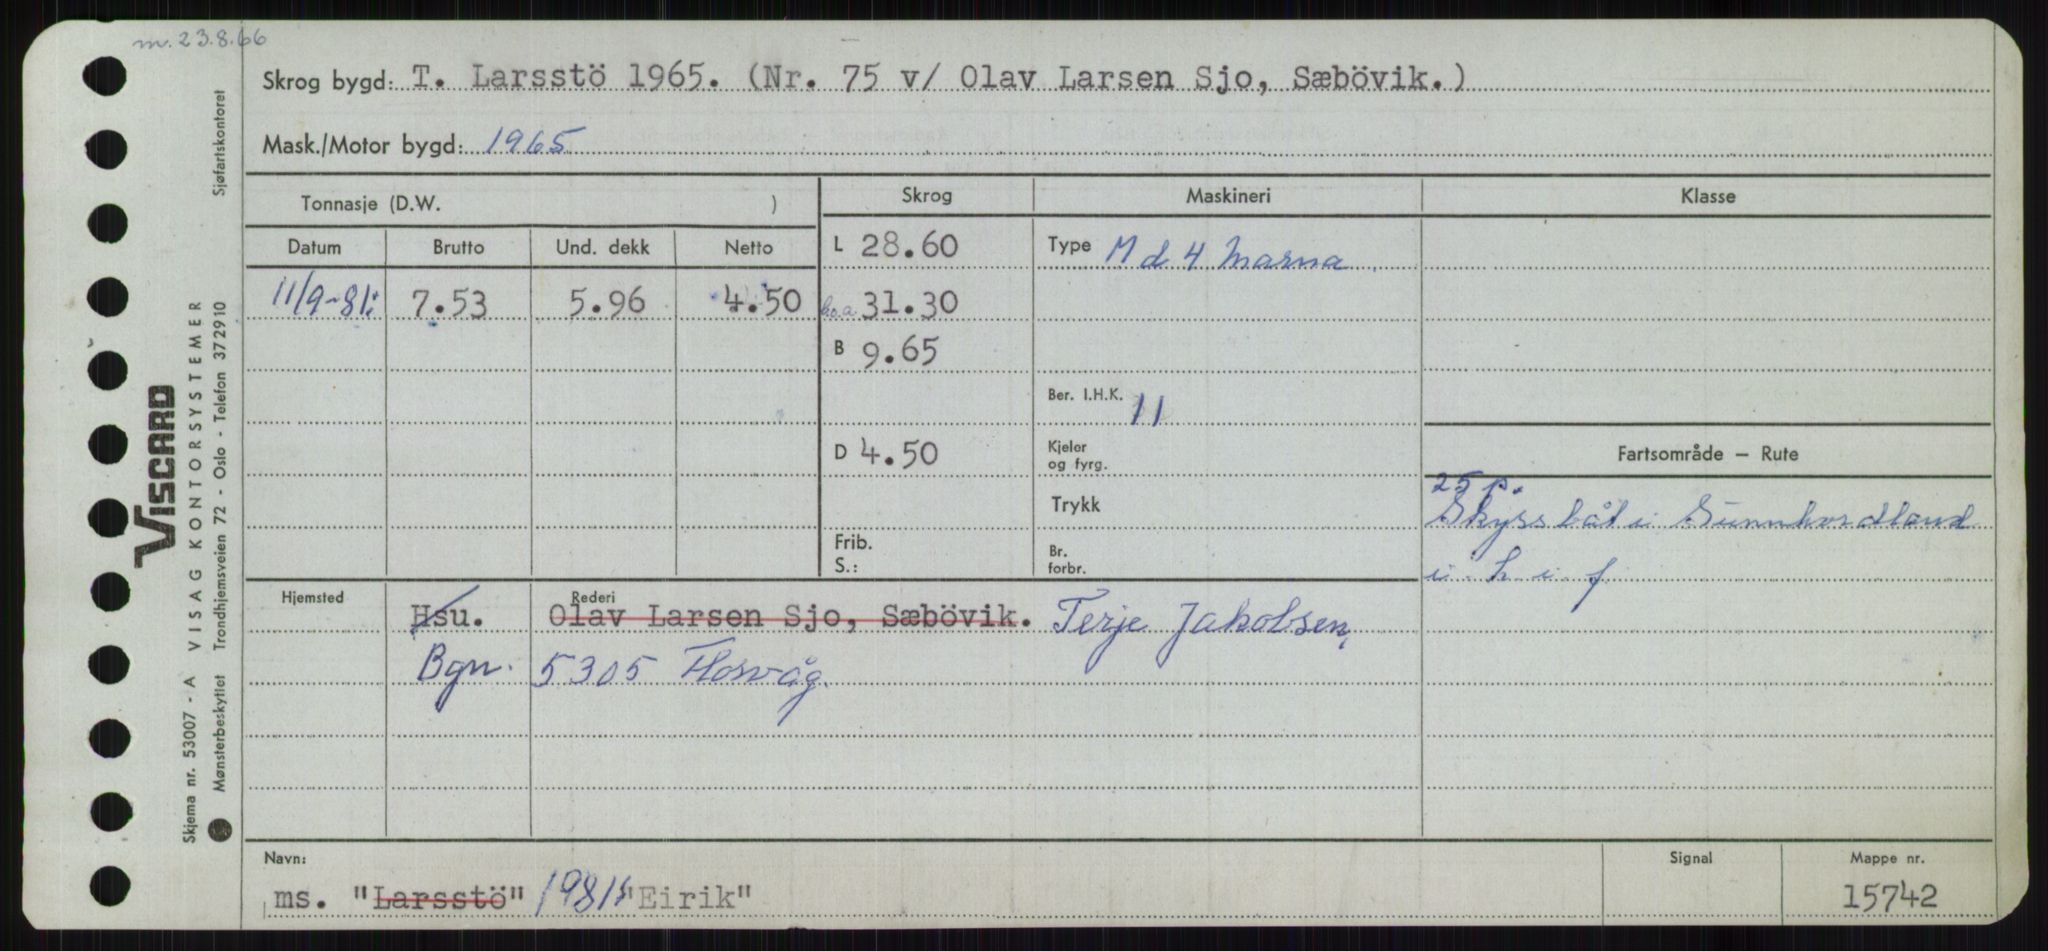 m. 23.8.66
Skrog bygd: T. Larsstö 1965. (Nr. 75 v/ Olav Larsen Sjo, Sæbövik.)
Mask./Motor bygd: 1965
Tonnasje (D.W. )
Skrog
Maskineri
Klasse
Datum
Brutto
Und. dekk
Netto
L 28.60
Type Md 4 Marna
11/9-81:
7.53
5.96
4.50
l.o.a 31.30
B 9.65
Ber. I.H.K. 11
D 4.50
Kjeler
og fyrg.
Fartsområde — Rute
Trykk
25 p.
Skyssbåt i Sunnhordland
Frib.
S.:
Br.
forbr.
i h i f
Hjemsted
Rederi
Hsu. Olav Larsen Sjo, Sæbövik. Terje Jakobsen,
Bgn. 5305 Florvåg.
Navn:
Signal
Mappe nr.
ms. "Larsstö" 1981: "Eirik"
15742
VISCARD
VISAG KONTORSYSTEMER
Skjema nr. 53007 - A
Sjøfartskontoret
Mønsterbeskyttet Trondhjemsveien 72 - Oslo - Telefon 372910